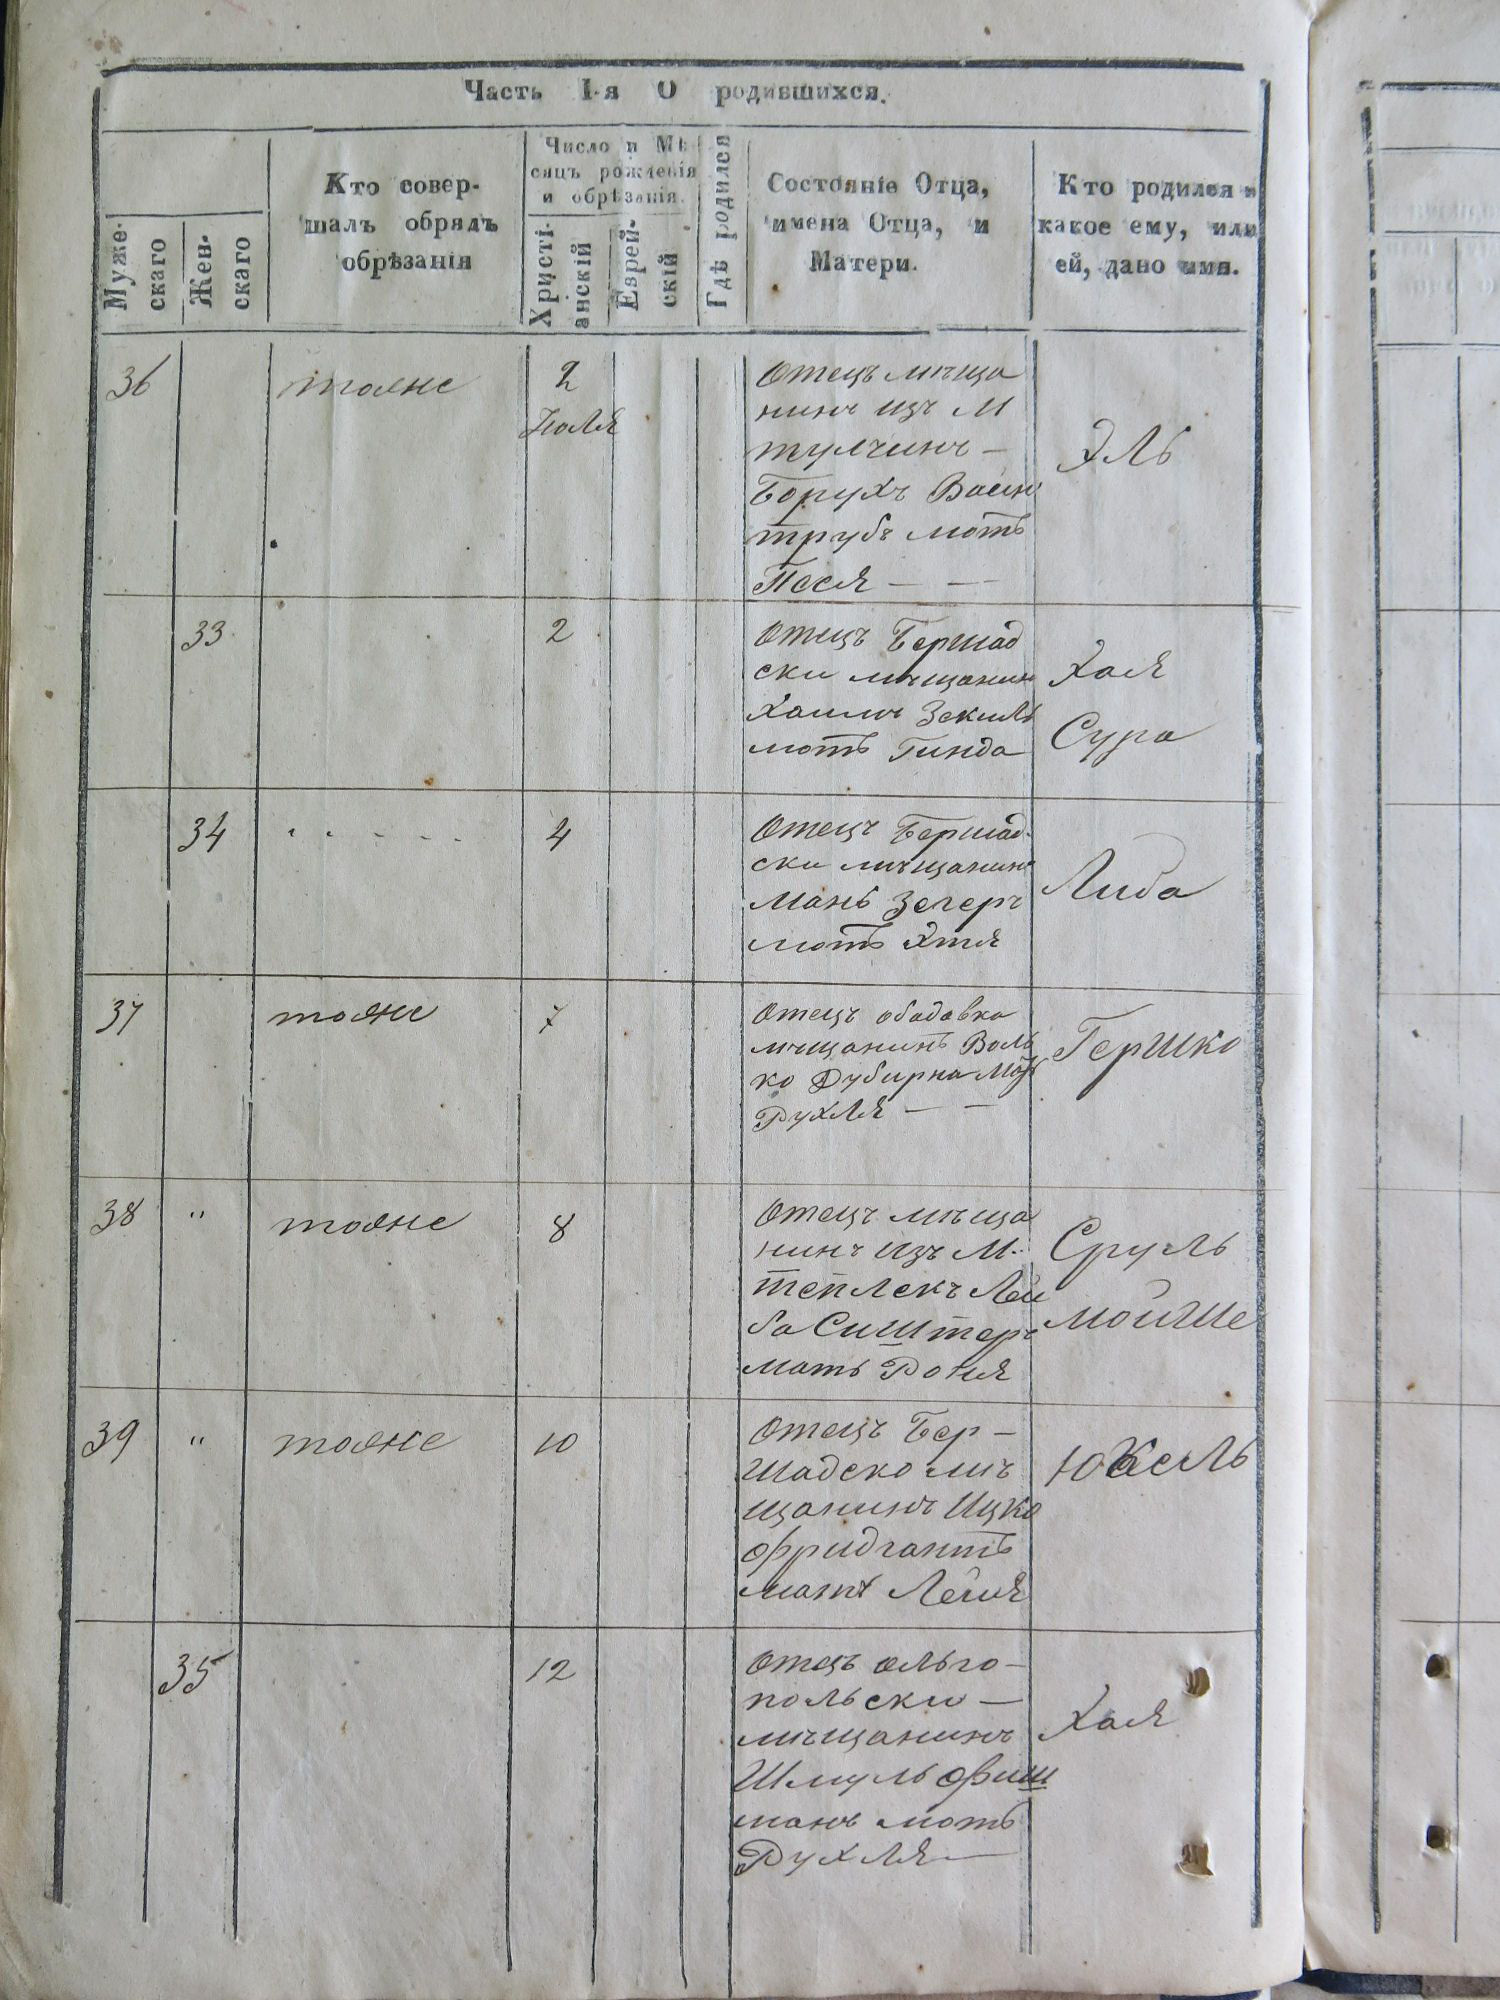 Часть I-я О родившихся.
Муже-
скаго
Жен-
скаго
Кто совер-
шалъ обрядъ
обрѣзанія
Число и Мѣ-
сяцъ рожденія
и обрѣзанія.
Христі-
анскій
Еврей-
скій
Гдѣ родился
Состояніе Отца,
имена Отца, и
Матери.
Кто родился и
какое ему, или
ей, дано имя.
36
тоже
2
Июля
Отецъ мѣща
нинъ изъ М
тулчинъ —
Борухъ Ваин
трубъ моть
Песя — —
Эль
33
2
Отецъ Бершад
ски мѣщанин
Хаимъ Зекиль
моть Гинда
Хая
Сура
34
4
Отецъ Бершад-
ски мѣщанинъ
Мань Зегеръ
моть Хтя
Либа
37
тоже
7
Отецъ ободовка
мѣщанинъ Воль
ко Дубирна моть
Рухля — —
Гершко
38
"
тоже
8
Отецъ мѣща
нинъ изъ М.
теплекъ Лей
ба Сиштеръ
мать Роня
Сруль
мойше
39
"
тоже
10
Отецъ Бер —
шадско мѣ
щанинъ Ицко
Фридгантъ
мать Лейя
Юкель
35
12
Отецъ ольго —
польски —
мѣщанинъ
Шмуль Фиш
манъ моть
Рухля —
Хая